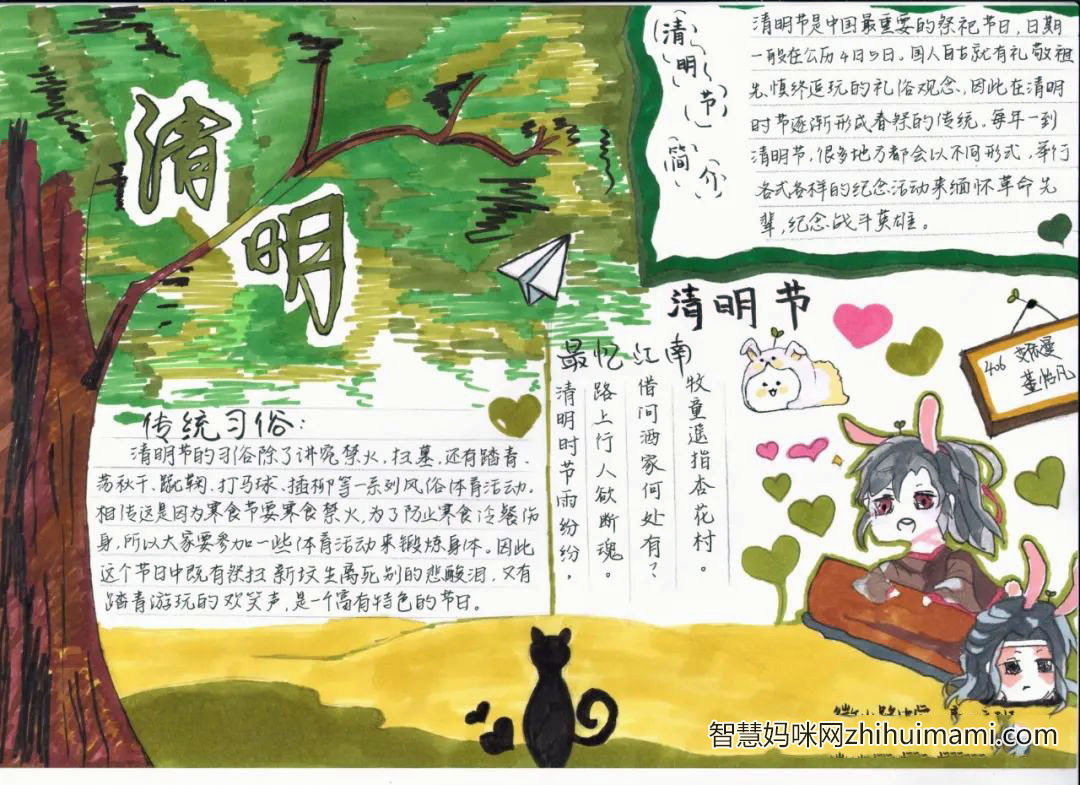 清明
清明节简介
清明节是中国最重要的祭祀节日，日期
一般在公历4月5日。国人自古就有礼敬祖
先，慎终追玩的礼俗观念，因此在清明
时节逐渐形成春祭的传统。每年一到
清明节，很多地方都会以不同形式，举行
各式各样的纪念活动来缅怀革命先
辈，纪念战斗英雄。
清明节
最忆江南
清明时节雨纷纷，
路上行人欲断魂。
借问酒家何处有？
牧童遥指杏花村。
406
传统习俗：
清明节的习俗除了讲究禁火、扫墓，还有踏青、
荡秋千、蹴鞠、打马球、插柳等一系列风俗体育活动。
相传这是因为寒食节要寒食禁火，为了防止寒食冷餐伤
身，所以大家要参加一些体育活动来锻炼身体。因此
这个节日中既有祭扫新坟生离死别的悲酸泪，又有
踏青游玩的欢笑声，是一个富有特色的节日。
智慧妈咪网zhihuimami.com